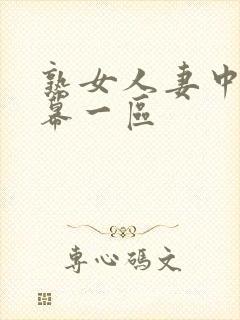 熟女人妻中
幕一區
專心碼文